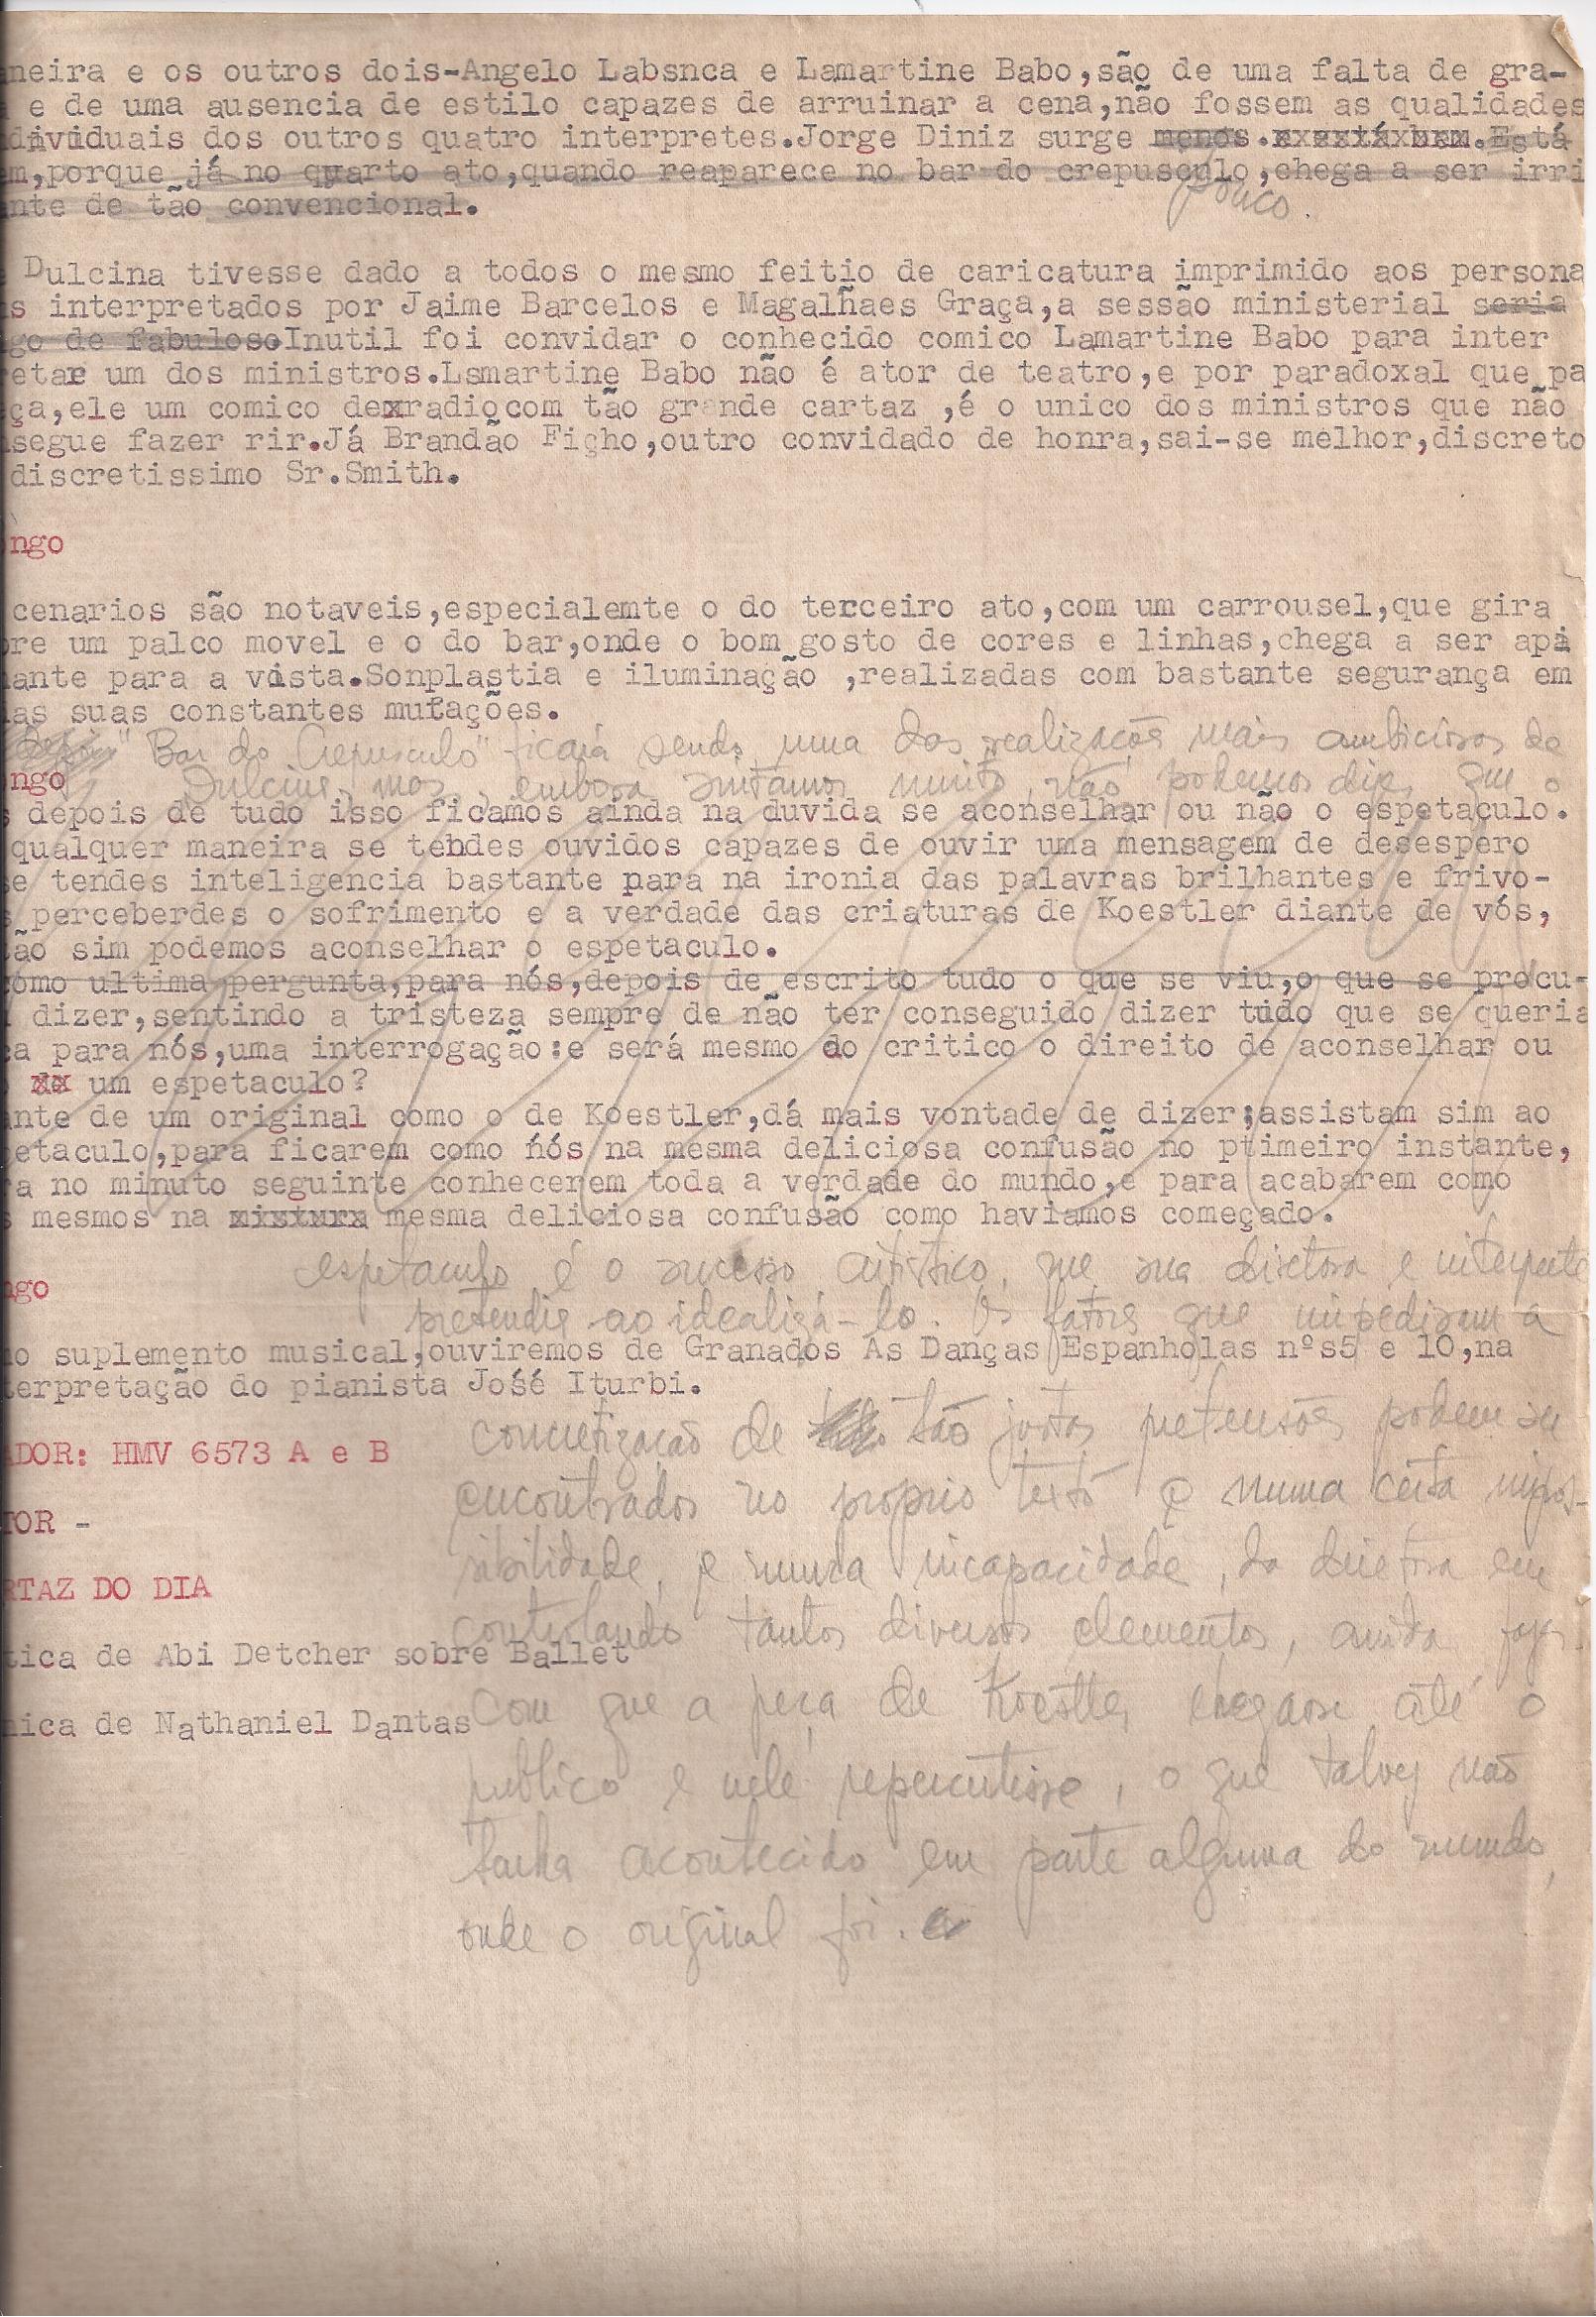 neira e os outros dois-Angelo Labsnca e Lamartine Babo,são de uma falta de gra-
e de uma ausencia de estilo capazes de arruinar a cena,não fossem as qualidades
dividuais dos outros quatro interpretes.Jorge Diniz surge menos.xxestáxbem.Está
m,porque já no quarto ato,quando reaparece no bar do crepusculo,chega a ser irri
nte de tão convencional.
pouco.
Dulcina tivesse dado a todos o mesmo feitio de caricatura imprimido aos persona
s interpretados por Jaime Barcelos e Magalhães Graça,a sessão ministerial seria
go de fabuloso.Inutil foi convidar o conhecido comico Lamartine Babo para inter
retar um dos ministros.Lsmartine Babo não é ator de teatro,e por paradoxal que pa
ça,ele um comico dexradio,com tão grande cartaz ,é o unico dos ministros que não
segue fazer rir.Já Brandão Ficho,outro convidado de honra,sai-se melhor,discreto
discretissimo Sr.Smith.
ngo
cenarios são notaveis,especialemte o do terceiro ato,com um carrousel,que gira
re um palco movel e o do bar,onde o bom gosto de cores e linhas,chega a ser apa
ante para a vista.Sonplastia e iluminação ,realizadas com bastante segurança em
as suas constantes mutações.
"Bar do Crepusculo" ficará sendo uma das realizações mais ambiciosas de
ngo
Dulcina, mas, embora sintamos muito, não podemos dizer que o
depois de tudo isso ficamos ainda na duvida se aconselhar ou não o espetaculo.
qualquer maneira se tendes ouvidos capazes de ouvir uma mensagem de desespero
e tendes inteligencia bastante para na ironia das palavras brilhantes e frivo-
perceberdes o sofrimento e a verdade das criaturas de Koestler diante de vós,
ão sim podemos aconselhar o espetaculo.
omo ultima pergunta,para nós,depois de escrito tudo o que se viu,o que se procu-
dizer,sentindo a tristeza sempre de não ter conseguido dizer tudo que se queria
ca para nós,uma interrogação:e será mesmo do critico o direito de aconselhar ou
xx um espetaculo?
nte de um original como o de Koestler,dá mais vontade de dizer;assistam sim ao
etaculo,para ficarem como nós na mesma deliciosa confusão no ptimeiro instante,
a no minuto seguinte conhecerem toda a verdade do mundo,e para acabarem como
mesmos na mesma deliciosa confusão como haviamos começado.
espetaculo é o sucesso artistico, que sua diretora e interprete
ngo
pretendia ao idealizá-lo. Os fatores que impediram a
o suplemento musical,ouviremos de Granados As Danças Espanholas nºs5 e 10,na
terpretação do pianista José Iturbi.
concretização de tão justas pretensões podem ser
ADOR: HMV 6573 A e B
encontrados no proprio texto e numa certa impos-
TOR -
sibilidade, e nunca incapacidade, da diretora em
RTAZ DO DIA
controlando tantos diversos elementos, ainda
tica de Abi Detcher sobre Ballet
com que a peça de Koestler chegasse até o
nica de Nathaniel Dantas
publico e nele repercutisse, o que talvez não
tenha acontecido em parte alguma do mundo,
onde o original foi.